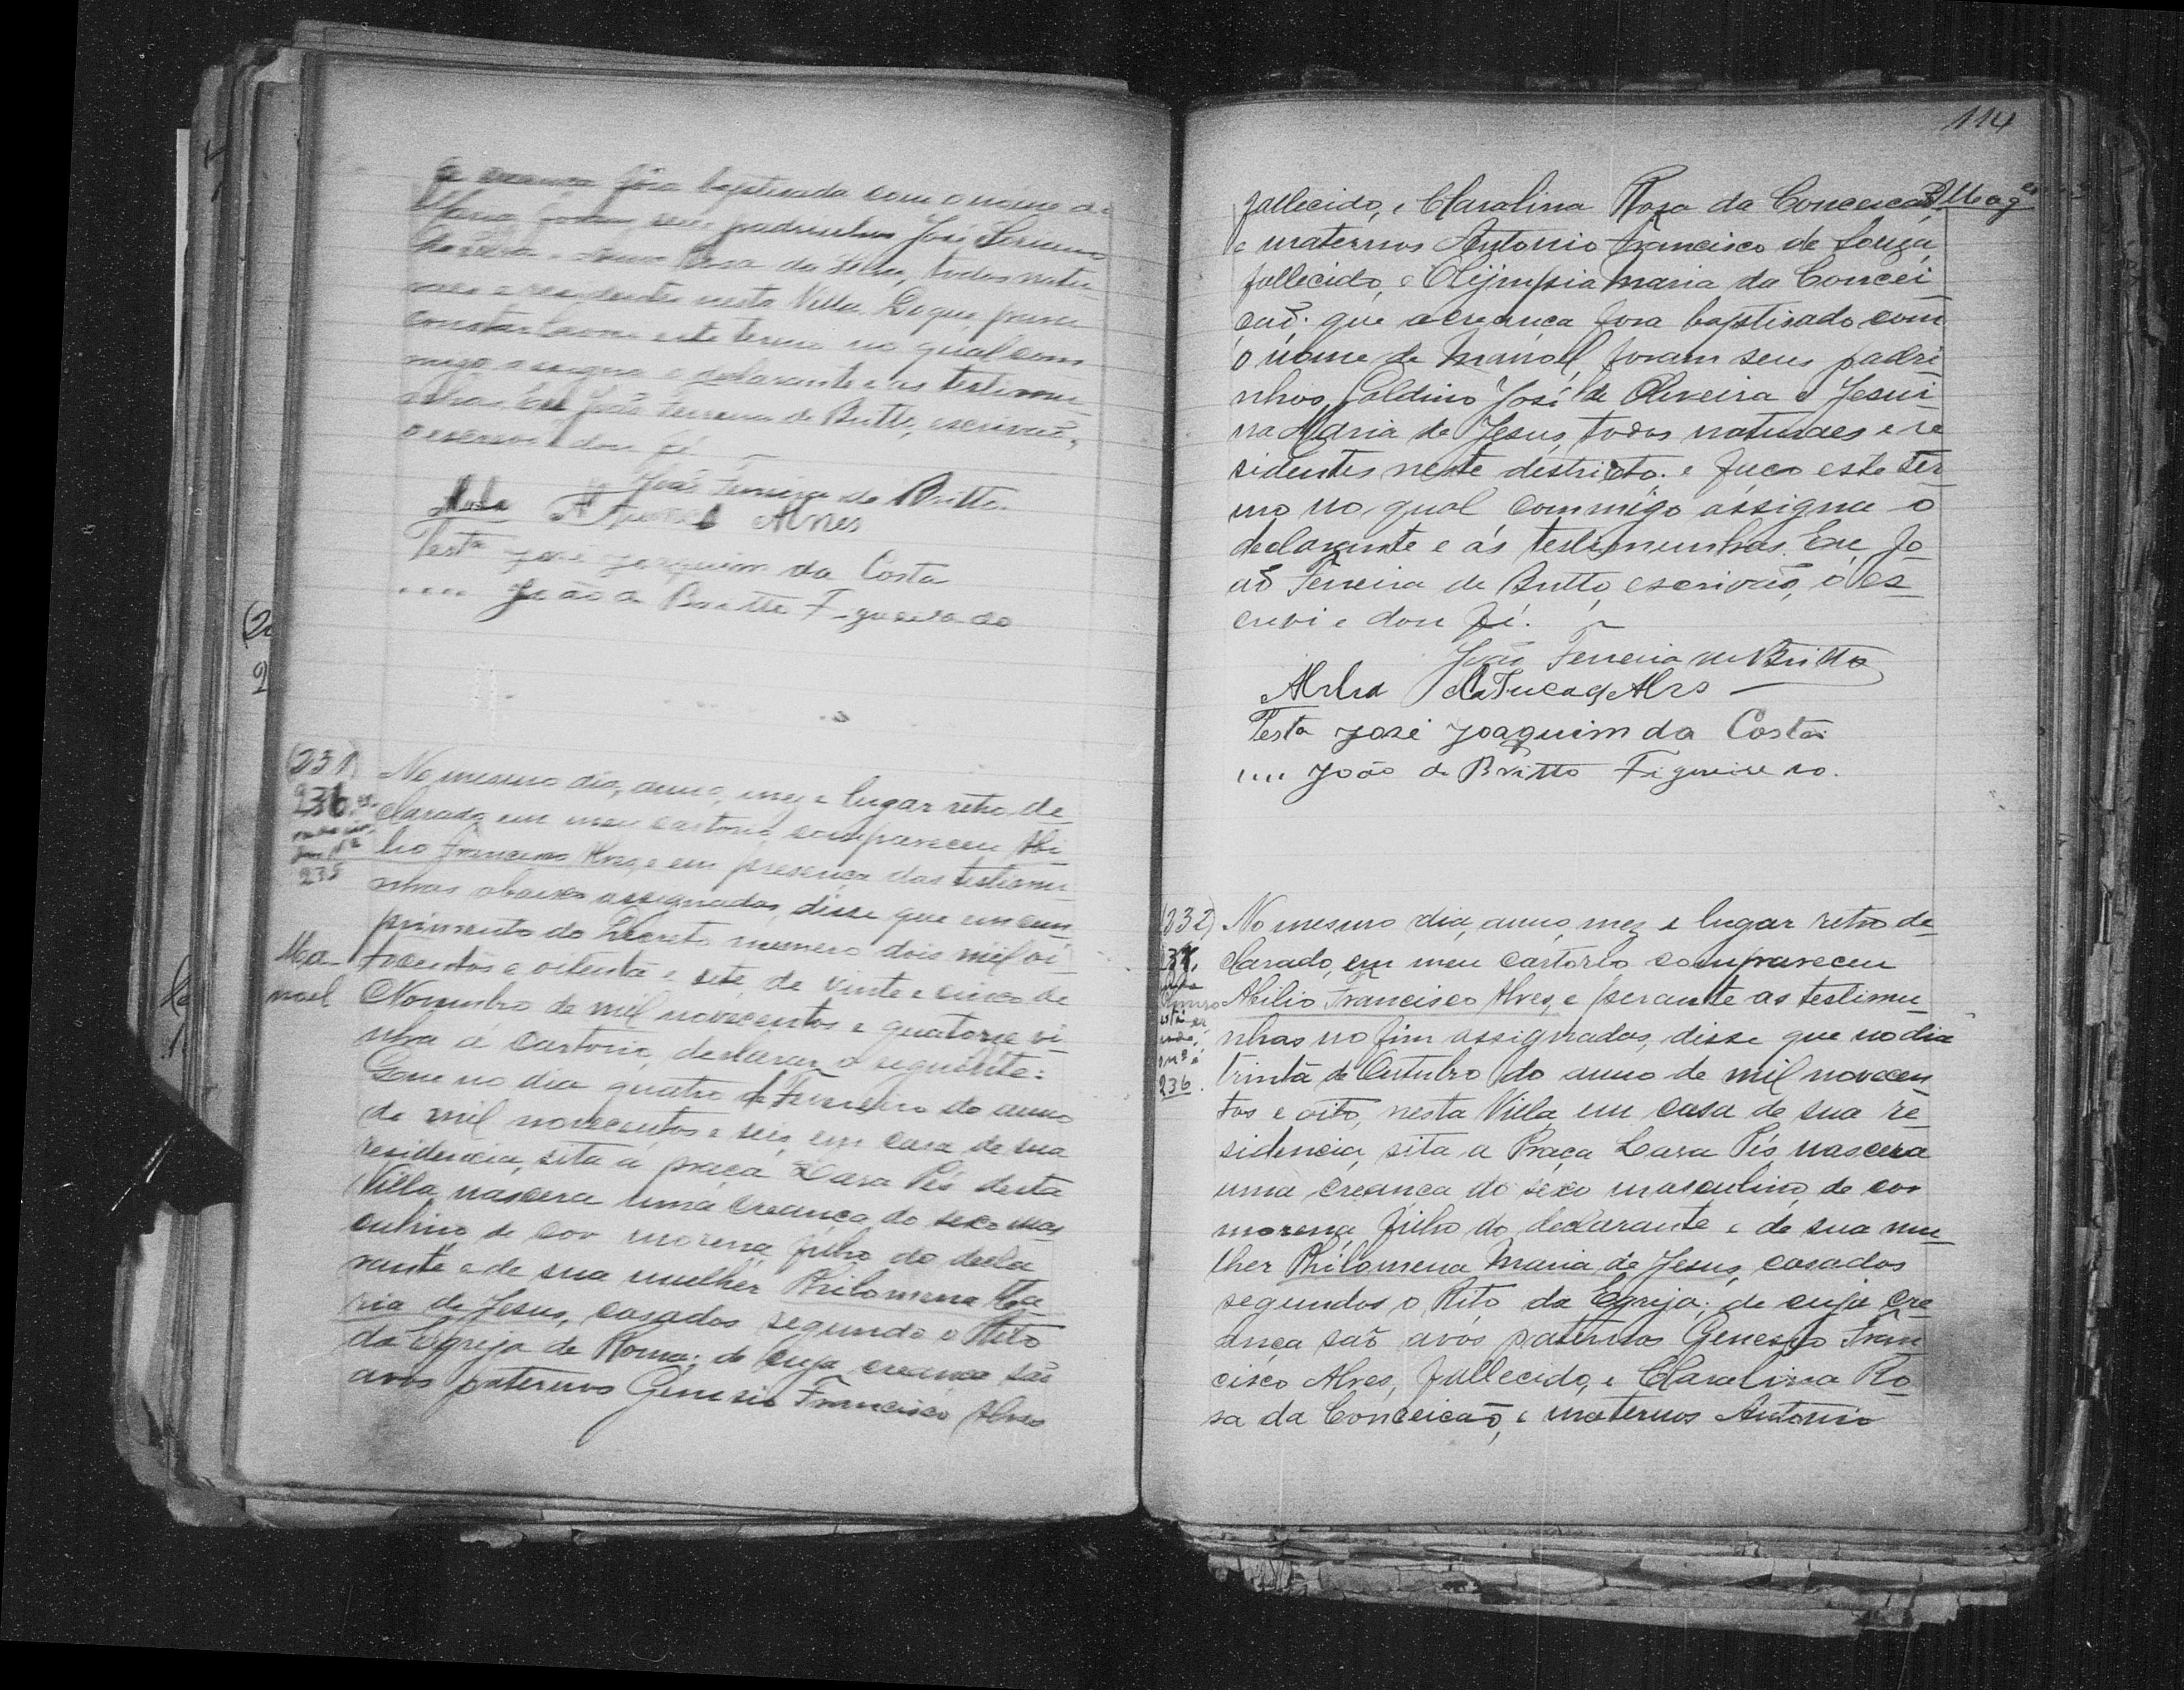 fôra baptisada com o nome de
Maria foram seus padrinhos José
da Silva, todos natu
raes e residentes nesta Villa. Do que para
constar lavrei este termo no qual com
migo assigna o declarante e as testimu
nhas. Eu João Ferreira de Britto, escrivão,
o escrevi e dou fé.
João Ferreira de Britto
Alves
Testa José Joaquim da Costa
.... João de Britto Figueiredo
(231)
236
235
Ma-
noel
No mesmo dia, anno, mez e lugar retro de
clarado, em meu cartorio, compareceu Abi
lio Francisco Alves, e em presença das testimu
nhas abaixo assignadas, disse que em cum
primento do Decreto numero dois mil oi
tocentos e oitenta e sete, de vinte e cinco de
Novembro de mil novecentos e quatorze vi
nha a cartorio, declarar o seguinte:
Que no dia quatro de Fevereiro do anno
de mil novecentos e seis, em casa de sua
residencia, sita a praça Lava Pés desta
Villa, nascera uma creança do sexo mas
culino, de cor morena, filho do decla
rante e de sua mulher Philomena Ma
ria de Jesus, casados segundo o Rito
da Egreja de Roma; de cuja creança são
avós paternos Genesio Francisco Alves
114
fallecido, e Claralina Roza da Conceicão
e maternos Antonio Francisco de Souza,
fallecido, e Olijmpia Maria da Concei
cão: que a creança fora baptisado com
o nome de Manoel, foram seus padri
nhos, Galdino José de Oliveira e Jesui
na Maria de Jesus, todos naturaes e re
sidentes neste destricto; e faço este ter
mo no qual commigo assigna o
declarante e ás testimunhas. Eu, Jo
ão Ferreira de Britto, escrivão, o es
crevi e dou fé.
João Ferreira de Britto
Testa José Joaquim da Costa
.... João de Britto Figueiredo.
(232)
237.
236.
No mesmo dia, anno, mez e lugar retro de
clarado, em meu cartorio compareceu
Abilio Francisco Alves, e perante as testimu
nhas no fim assignadas, disse que no dia
trinta de Outubro do anno de mil novecen
tos e oito, nesta Villa em casa de sua re
sidencia, sita a Praça Lava Pés nascera
uma creança do sexo masculino, de cor
morena, filho do declarante e de sua mu
lher Philomena Maria de Jesus, casados
segundos o Rito da Egreja; de cuja cre
ança são avós paternos Genesio Fran
cisco Alves, fallecido, e Claralina Ro
sa da Conceicão, e maternos Antonio